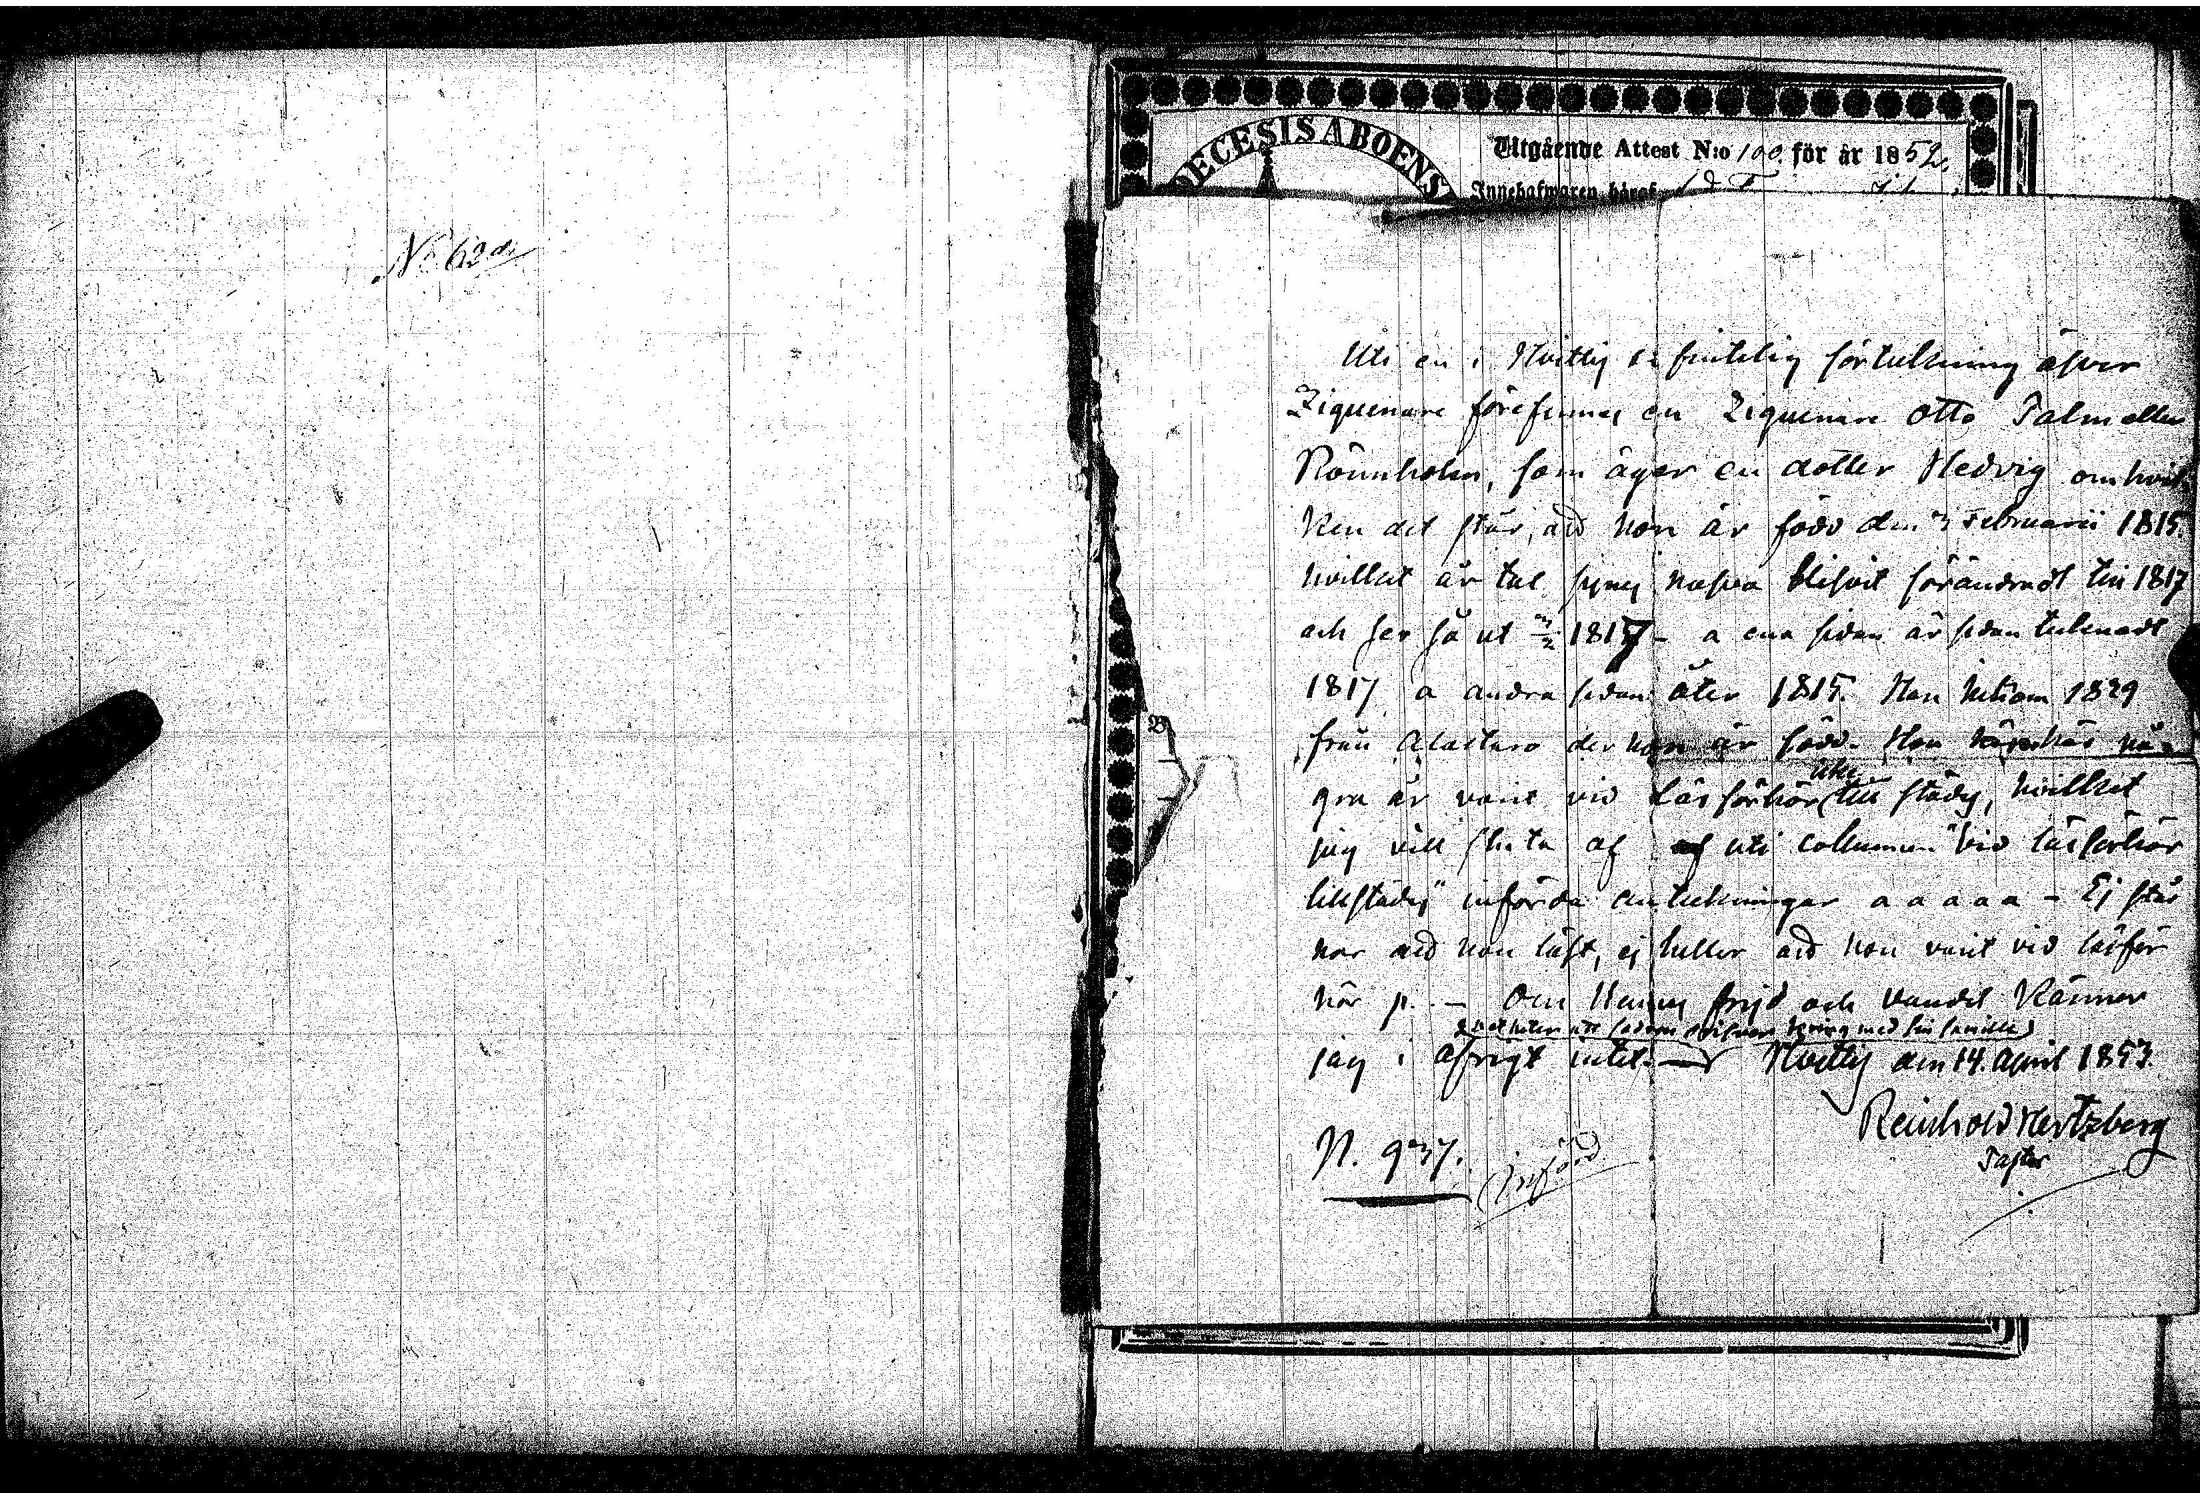 No 62 de
DIOECESIS ABOENS
Utgående Attest N:o 100. för år 1852.
Innehafwaren häraf
Uti en i Hvittis befintelig förtekning öfver
Ziguenare förefinnes en Ziguenare Otto Palm eller
Rönnholm, som äger en dotter Hedvig om hvil
ken det står, att hon är född den 3 Februarii 1815.
hvilket år tal synes hafva blifvit förändradt till 1817
och ser så ut 3/2 1817 - a ena sidan är sedan teknadt
1817 a andra sidan åter 1815. Hon hitkom 1829
från Alastaro der hon är född. Hon har här nå
gra år varit vid Läsförhör icke till städes, hvilket
jag vill sluta af uti collumnen "vid läsförhör
tillstädes" införda antekningar a a a a a - Ej står
här att hon läst, ej heller att hon varit vid läsför
hör p. - Om Hennes frejd och vandel känner
med sin familie)
jag i öfrigt intet. Hvittis den 14. April 1853.
Reinhold Hertzberg
Pastor
N. 937.
Införd